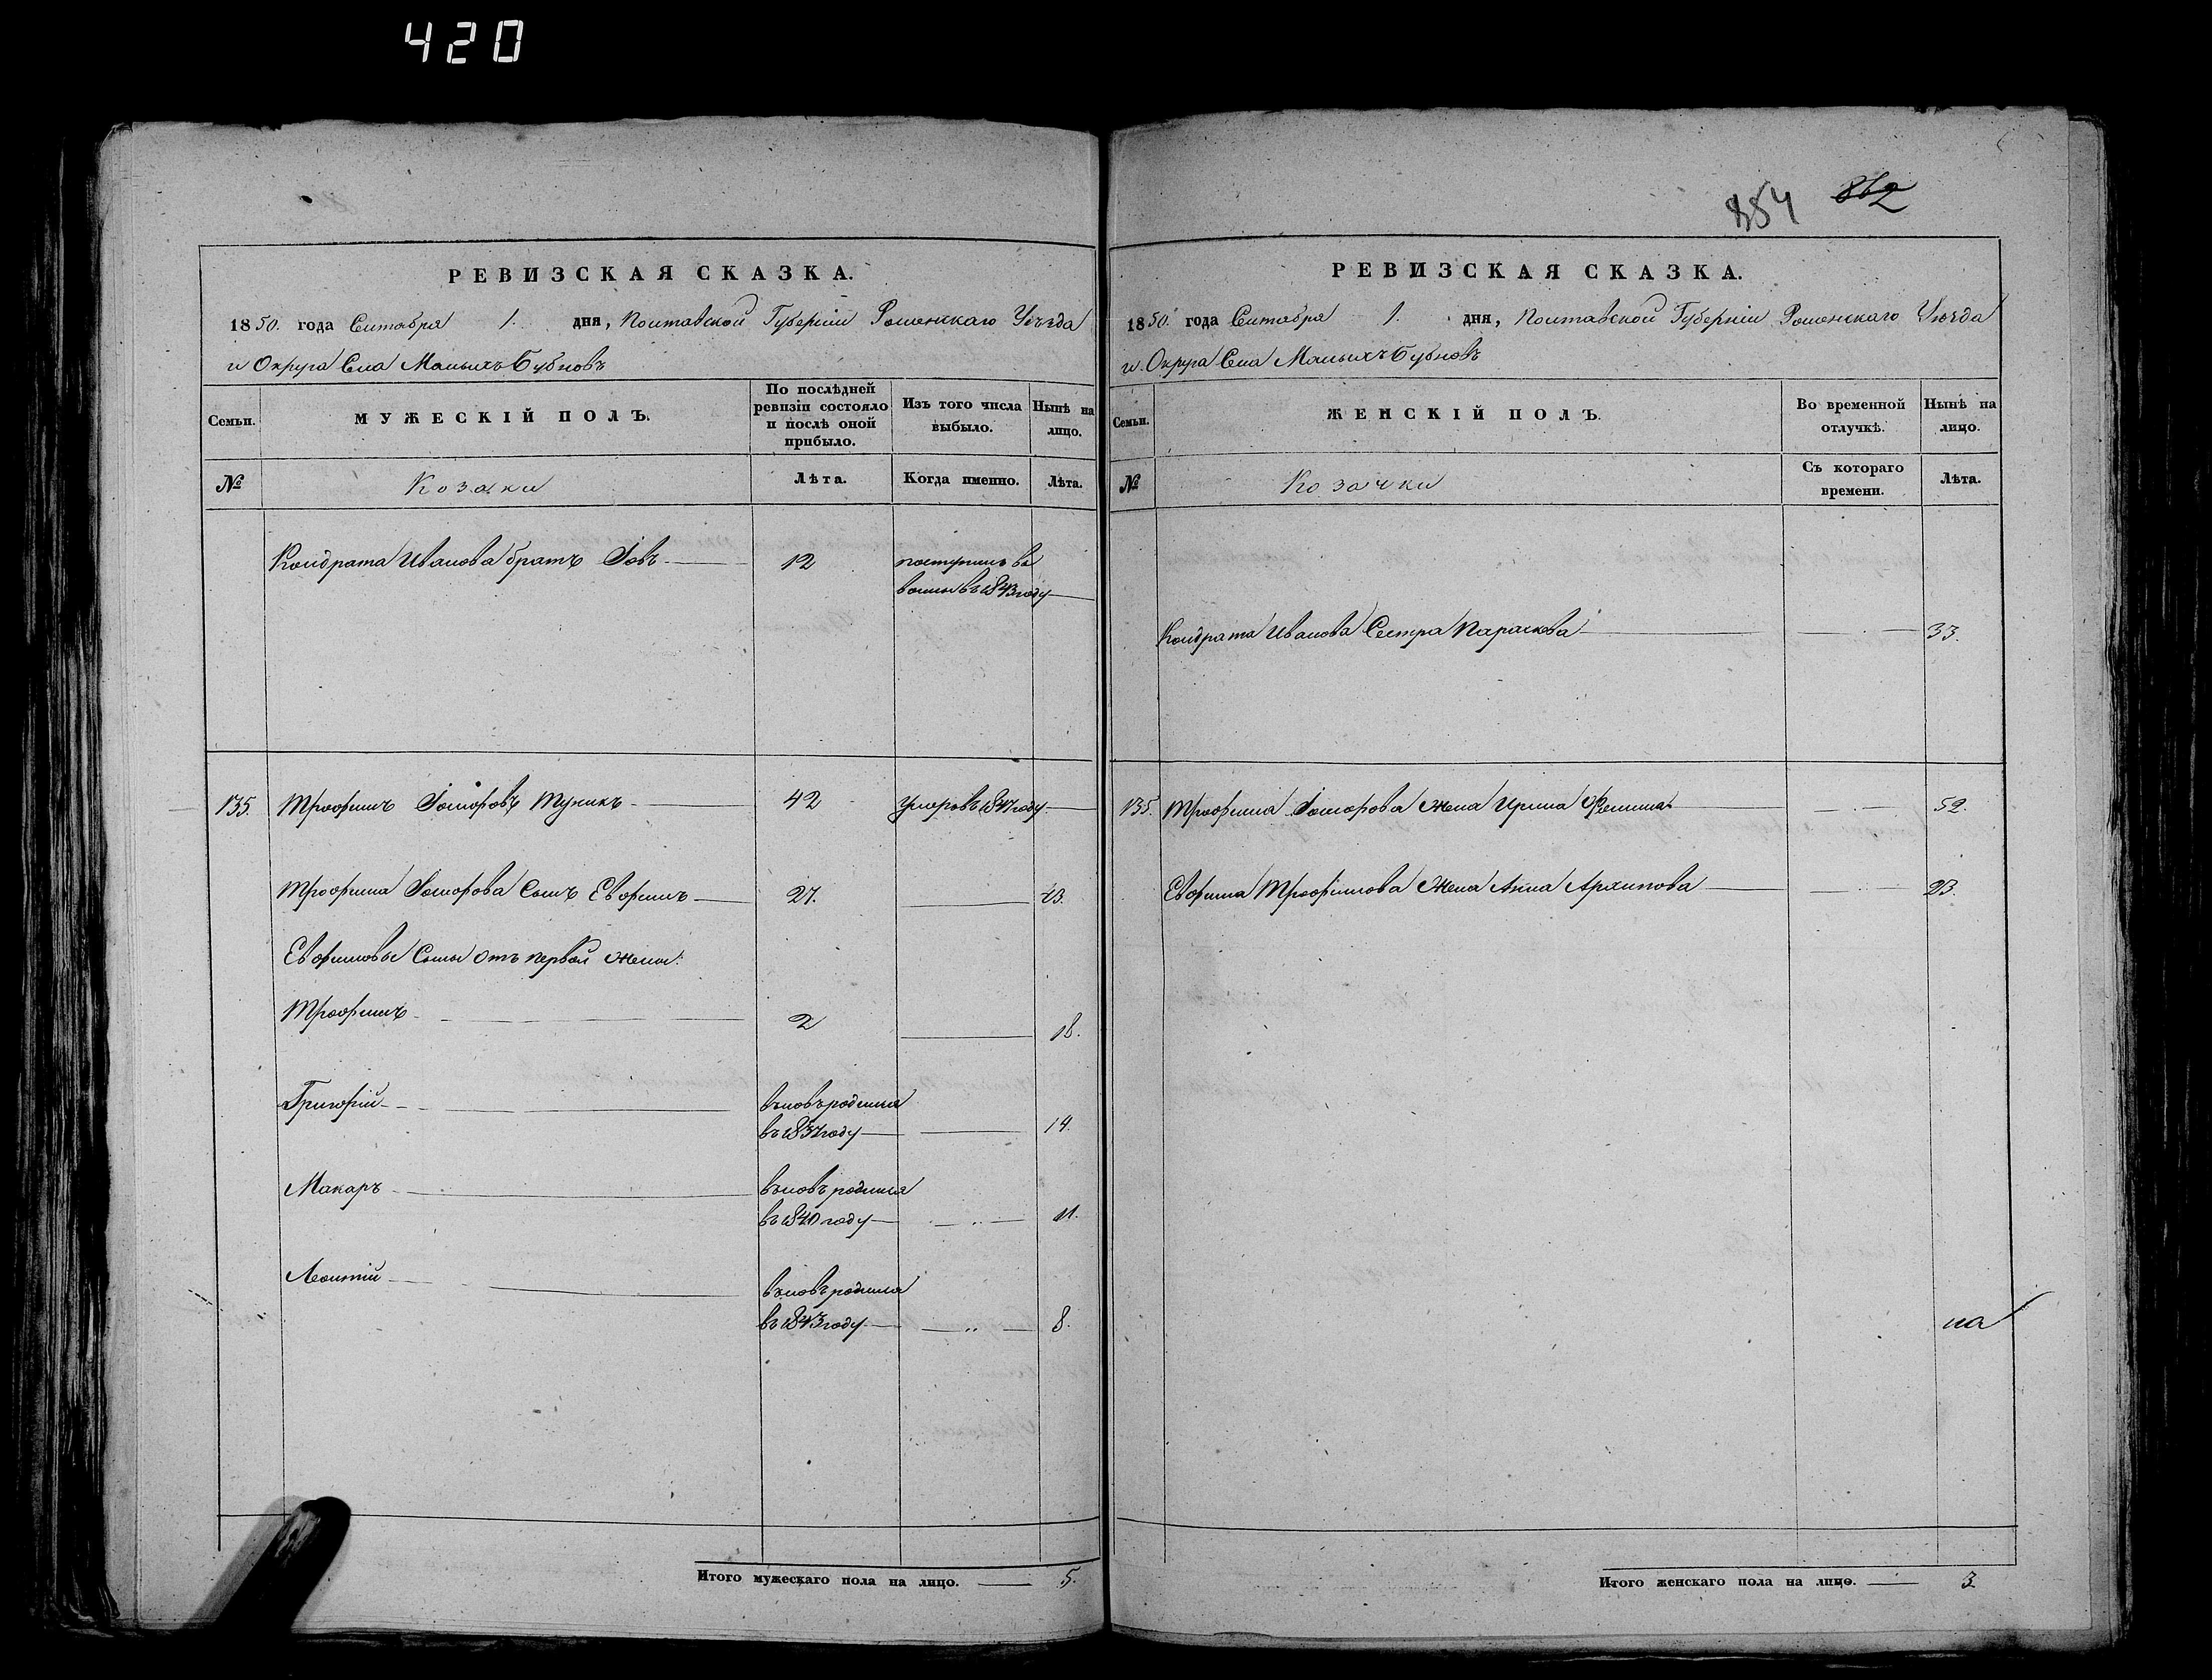 420
854 862
РЕВИЗСКАЯ СКАЗКА.
1850. года Сентября 1. дня, Полтавской Губерніи Роменскаго Уѣзда
и Округа Села Малыхъ Бубновъ
Семьи.
МУЖЕСКІЙ ПОЛЪ.
По послѣдней
ревизіи состояло
и послѣ оной
прибыло.
Изъ того числа
выбыло.
Нынѣ на
лицо.
№
Козаки
Лѣта.
Когда именно.
Лѣта.
Кондрата Иванова братъ Іовъ 12 поступилъ въ
въ 1843 году
135. Трофимъ 42 умеръ въ 1847 году
Трофима сынъ Евфимъ 27. 43.
Евфимовы Сыны отъ первой жены:
Трофимъ 2 18.
Григорій вновь родился
въ 1837 году 14.
Макаръ вновь родился
въ 1840 году 11.
Леонтій вновь родился
въ 1843 году 8.
Итого мужескаго пола на лицо. 5.
РЕВИЗСКАЯ СКАЗКА.
1850. года Сентября 1. дня, Полтавской Губерніи Роменскаго Уѣзда
и Округа Села Малыхъ Бубновъ
Семьи.
ЖЕНСКІЙ ПОЛЪ.
Во временной
отлучкѣ.
Нынѣ на
лицо.
№
Козачки
Съ котораго
времени.
Лѣта.
Кондрата Иванова Сестра Параскова 33.
135. Трофима жена Ирина 52.
Евфима Трофимова Жена Анна Архипова 23.
на
Итого женскаго пола на лицо. 3